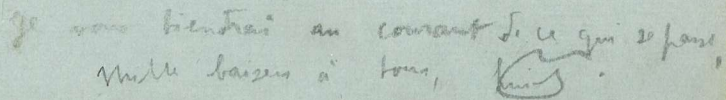 Je vous tiendrai au courant de ce qui se passe,
Mille baisers à tous,